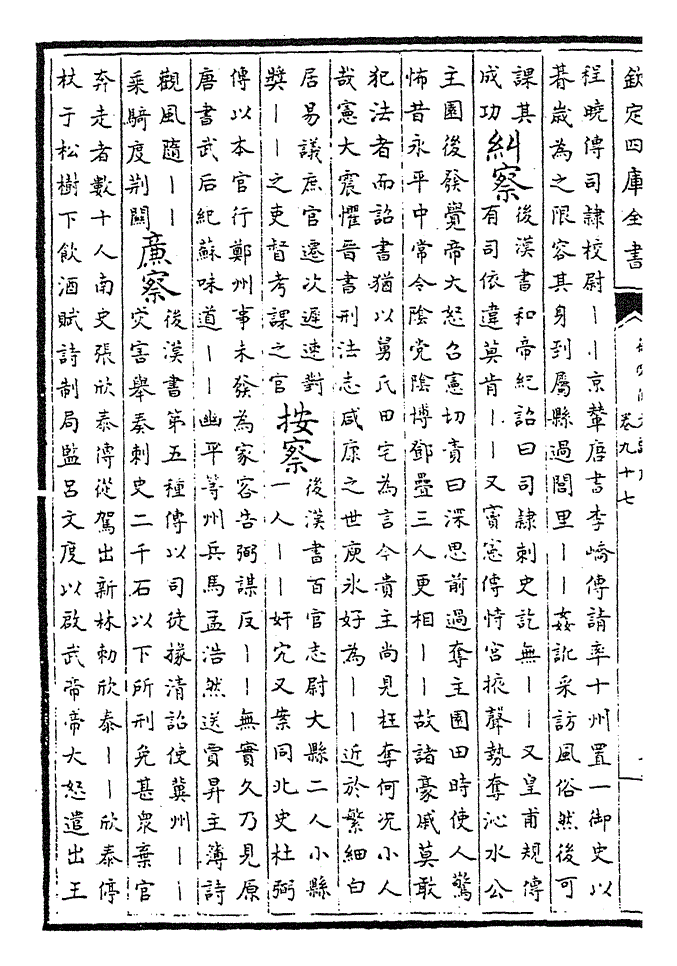 欽定四庫全書
卷九十七
程曉傳司隸校尉丨丨京輦唐書李嶠傳請率十州置一御史以
朞歲為之限容其身到屬縣過閭里丨丨姦訛采訪風俗然後可
課其
成功
糾察
後漢書和帝紀詔曰司隸刺史訖無丨丨又皇甫規傳
有司依違莫肯丨丨又竇憲傳恃宮掖聲勢奪沁水公
主園後發覺帝大怒召憲切責曰深思前過奪主園田時使人驚
怖昔永平中常令陰党陰博鄧疊三人更相丨丨故諸豪戚莫敢
犯法者而詔書猶以舅氏田宅為言今貴主尚見枉奪何況小人
哉憲大震懼晉書刑法志咸康之世庾冰好為丨丨近於繁細白
居易議庶官遷次遲速對
奬丨丨之吏督考課之官
按察
後漢書百官志尉大縣二人小縣
一人丨丨奸宄又案同北史杜弼
傳以本官行鄭州事未發為家客告弼謀反丨丨無實久乃見原
唐書武后紀蘇味道丨丨幽平等州兵馬孟浩然送賈昇主簿詩
觀風隨丨丨
乘騎度荆關
廉察
後漢書第五種傳以司徒掾清詔使冀州丨丨
災害舉奏刺史二千石以下所刑免甚衆棄官
奔走者數十人南史張欣泰傳從駕出新林勅欣泰丨丨欣泰停
杖于松樹下飲酒賦詩制局監呂文度以啟武帝帝大怒遣出王